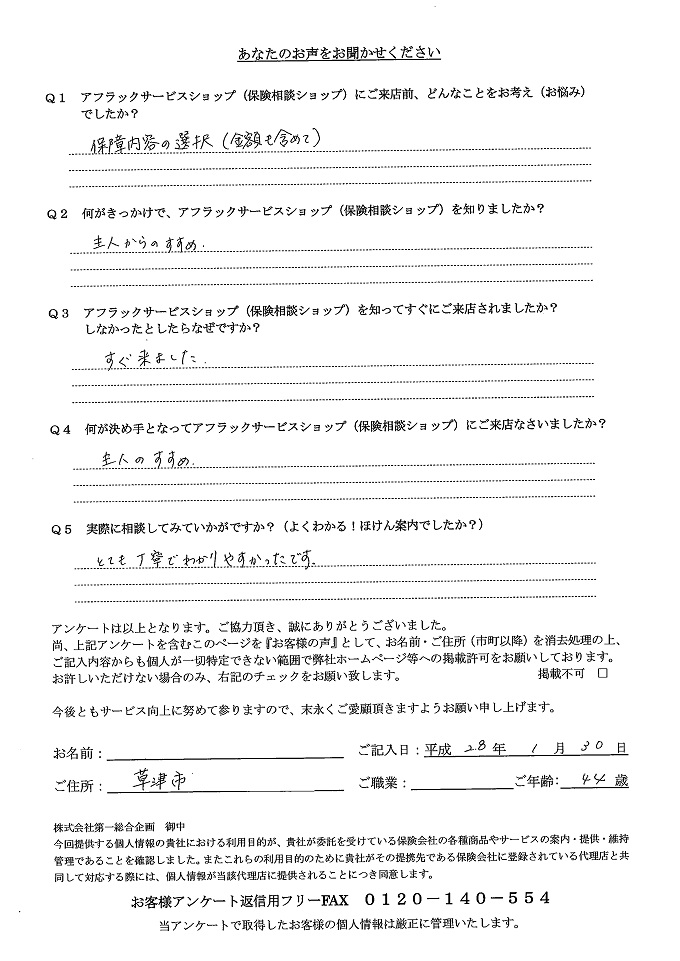 あなたのお声をお聞かせください
Q1 アフラックサービスショップ（保険相談ショップ）にご来店前、どんなことをお考え（お悩み）
でしたか？
保障内容の選択（金額も含めて）
Q2 何がきっかけで、アフラックサービスショップ（保険相談ショップ）を知りましたか？
主人からのすすめ.
Q3 アフラックサービスショップ（保険相談ショップ）を知ってすぐにご来店されましたか？
しなかったとしたらなぜですか？
すぐ来ました.
Q4 何が決め手となってアフラックサービスショップ（保険相談ショップ）にご来店なさいましたか？
主人のすすめ.
Q5 実際に相談してみていかがですか？（よくわかる！ほけん案内でしたか？）
とても丁寧でわかりやすかったです.
アンケートは以上となります。ご協力頂き、誠にありがとうございました。
尚、上記アンケートを含むこのページを『お客様の声』として、お名前・ご住所（市町以降）を消去処理の上、
ご記入内容からも個人が一切特定できない範囲で弊社ホームページ等への掲載許可をお願いしております。
お許しいただけない場合のみ、右記のチェックをお願い致します。 掲載不可 □
今後ともサービス向上に努めて参りますので、末永くご愛顧頂きますようお願い申し上げます。
お名前： ご記入日：平成 28 年 1 月 30 日
ご住所： 草津市 ご職業： ご年齢： 44 歳
株式会社第一総合企画 御中
今回提供する個人情報の貴社における利用目的が、貴社が委託を受けている保険会社の各種商品やサービスの案内・提供・維持
管理であることを確認しました。またこれらの利用目的のために貴社がその提携先である保険会社に登録されている代理店と共
同して対応する際には、個人情報が当該代理店に提供されることにつき同意します。
お客様アンケート返信用フリーFAX 0120-140-554
当アンケートで取得したお客様の個人情報は厳正に管理いたします。